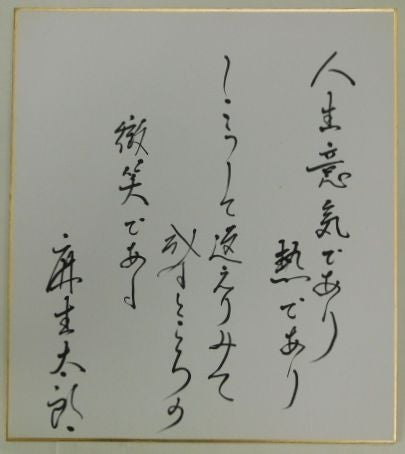 人生意気であり
熱であり
しこうして返えりみて
成すところの
微笑であり
麻生太郎